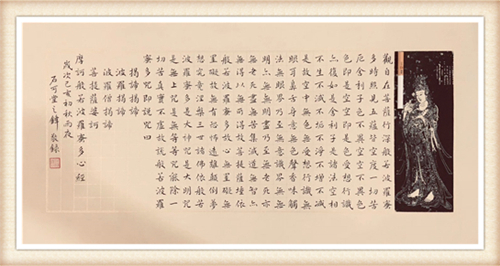 觀自在菩薩行深般若波羅蜜
多時照見五蘊皆空度一切苦
厄舍利子色不異空空不異色
色即是空空即是色受想行識
亦復如是舍利子是諸法空相
不生不滅不垢不淨不增不減
是故空中無色無受想行識無
眼耳鼻舌身意無色聲香味觸
法無眼界乃至無意識界無無
明亦無無明盡乃至無老死亦
無老死盡無苦集滅道無智亦
無得以無所得故菩提薩埵依
般若波羅蜜多故心無罣礙無
罣礙故無有恐怖遠離顛倒夢
想究竟涅槃三世諸佛依般若
波羅蜜多是大神咒是大明咒
是無上咒是無等等咒能除一
切苦真實不虛故說般若波羅
蜜多咒即說咒曰
揭諦揭諦
波羅揭諦
波羅僧揭諦
菩提薩婆訶
摩訶般若波羅蜜多心經
歲次己亥初秋雨夜